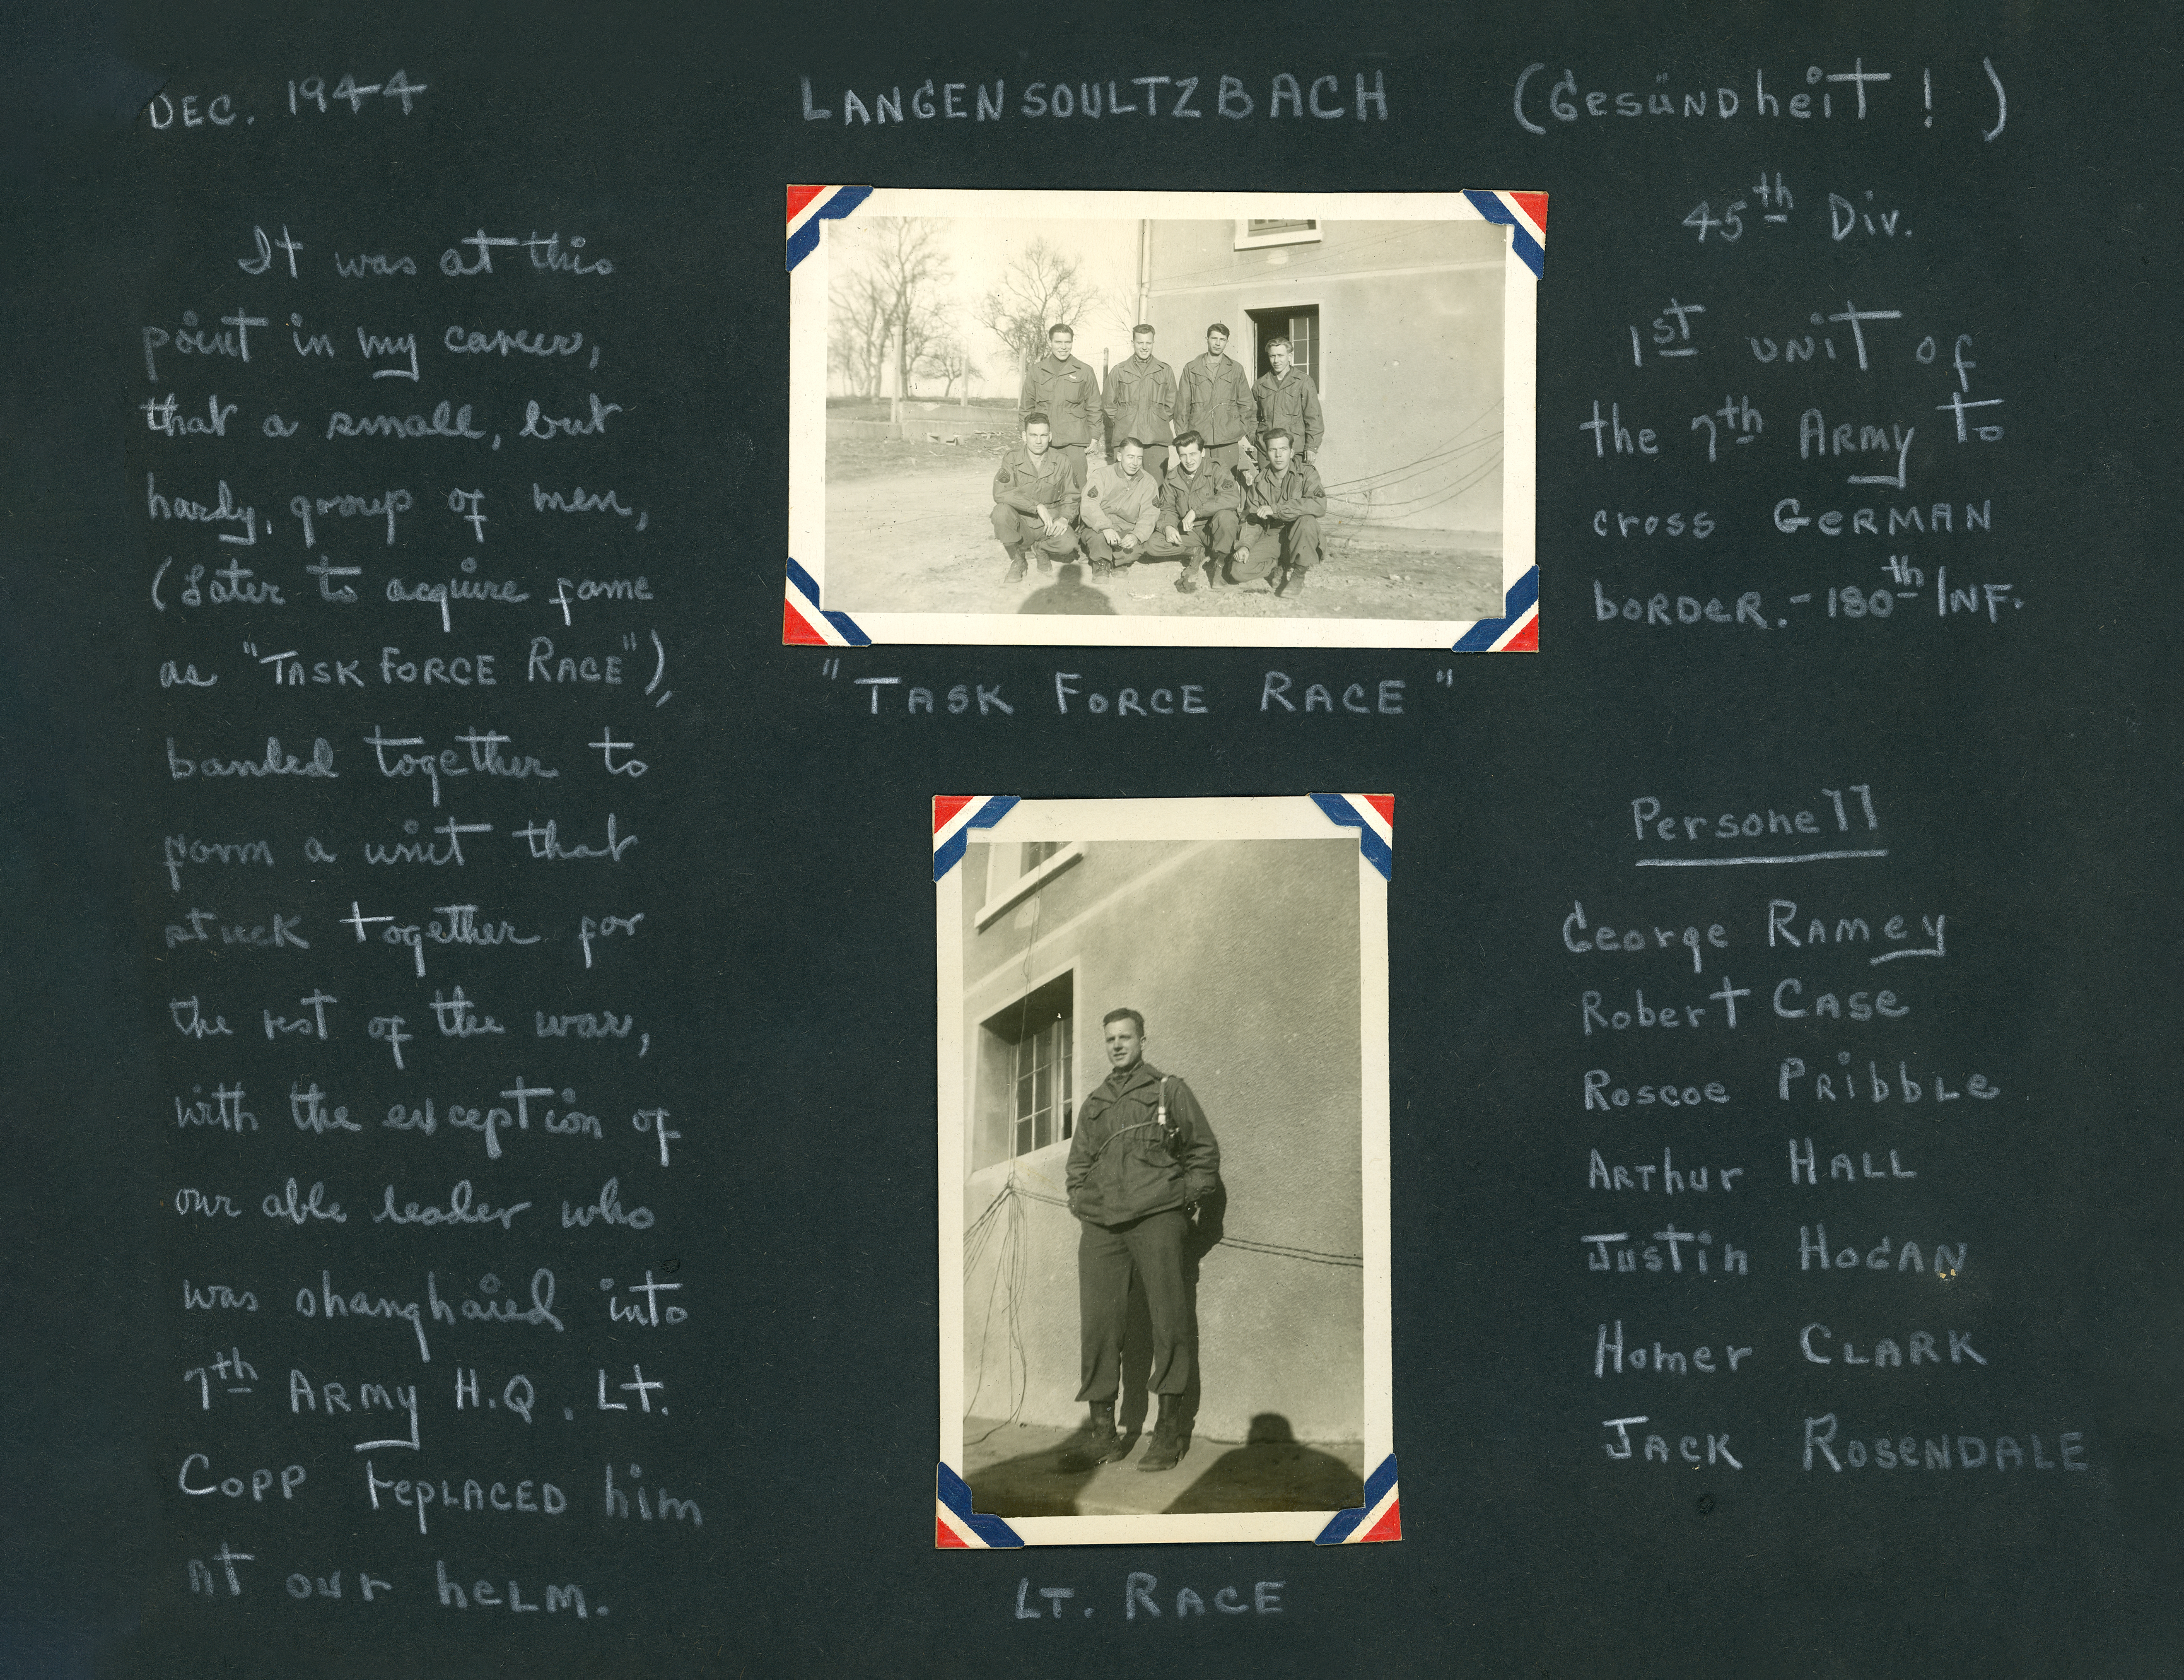 DEC. 1944
LANGENSOULTZBACH (Gesündheit!)
It was at this
point in my career,
that a small, but
hardy, group of men,
(later to acquire fame
as "TASK FORCE RACE"),
banded together to
form a unit that
stuck together for
the rest of the war,
with the exception of
our able leader who
was shanghaied into
7th ARMY H.Q. Lt.
COPP rePLACED him
AT our heLM.
"TASK FORCE RACE"
LT. RACE
45th Div.
1st UNIT of
the 7th ARMY to
cross GERMAN
bORDER. - 180th INF.
Personell
George RAMEY
Robert CASE
Roscoe PRIBBLE
ARThur HALL
Justin HOGAN
Homer CLARK
JACK ROSENDALE